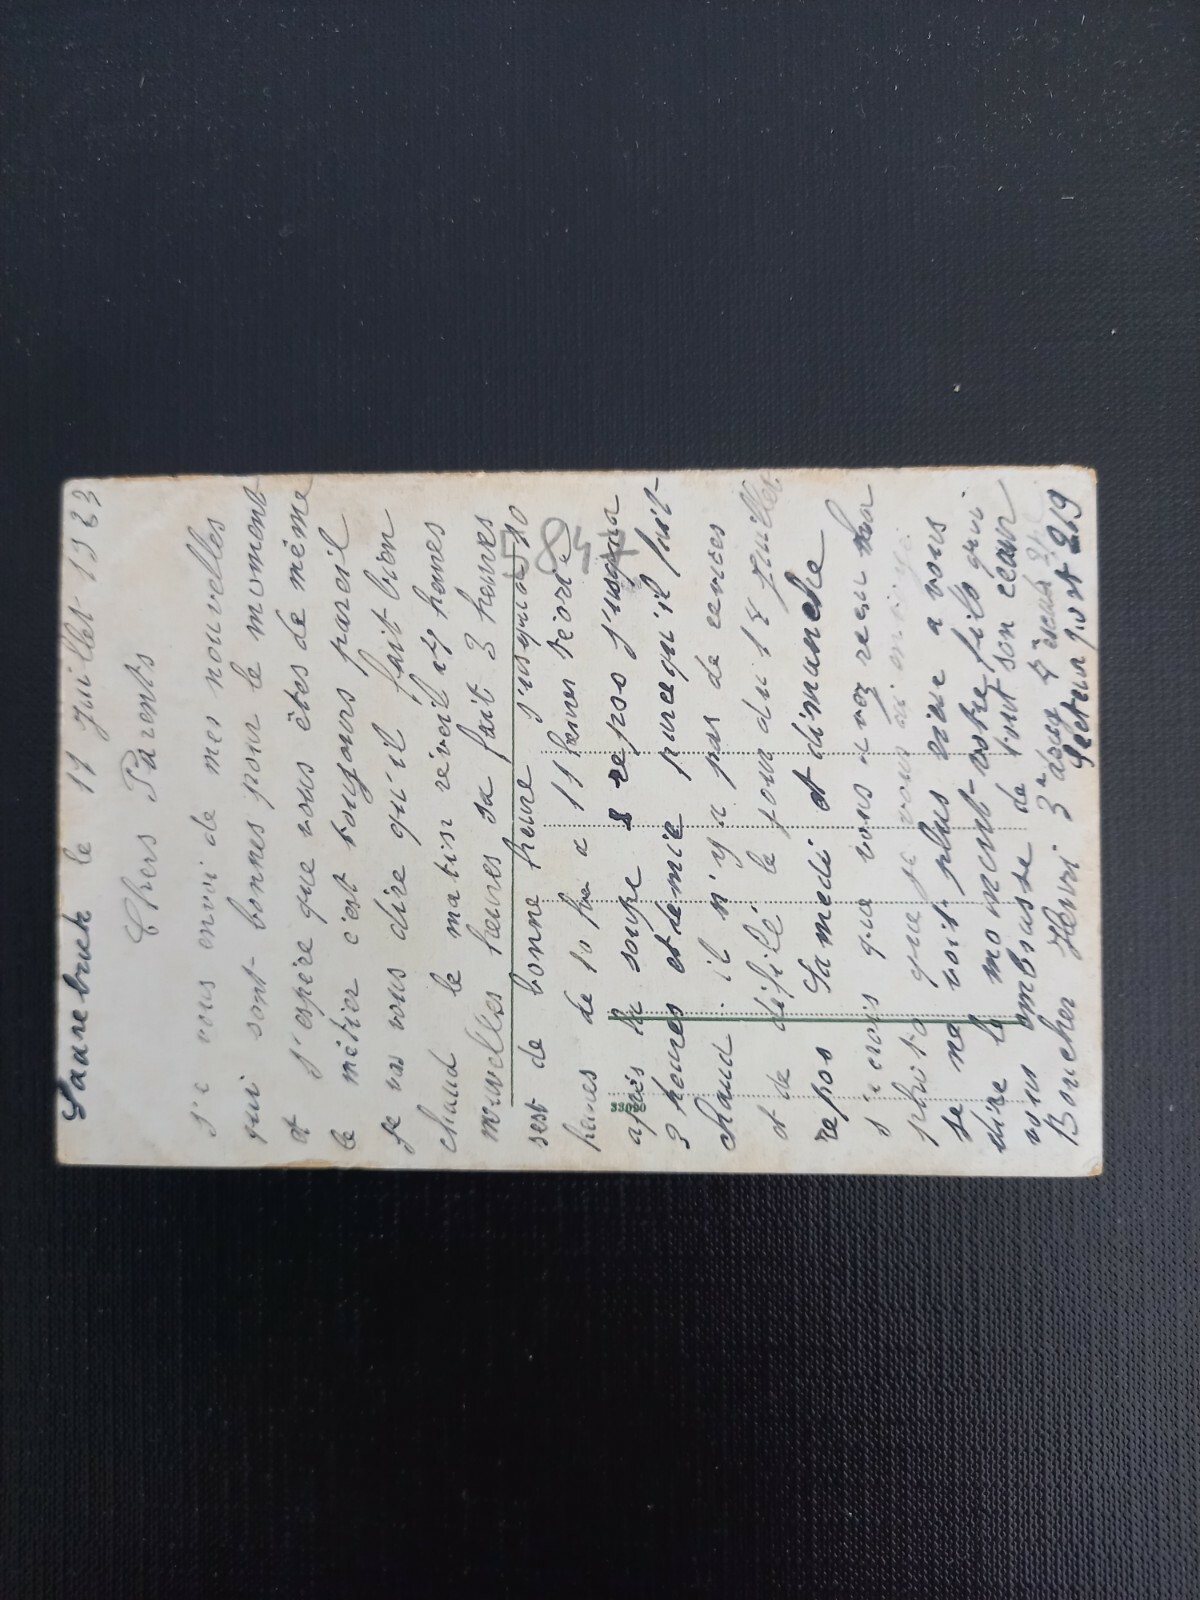 Saarebruck le 11 Juillet 1923
Chers Parents
J'e vous envoi de mes nouvelles
qui sont bonnes pour le moment
et j'espère que vous êtes de même
le métier c'est toujours pareil
Je vas vous dire qu'il fait bien
chaud le matin réveil heures
mouvelles heures sa fait 3 heures
sest de bonne heure j'usqua 10
heures de 10 h a 11 heures téorie
après la soupe repso j'usqua
3 heures et demie parcequ'il fait
chaud il n'y a pas de cervices
et de défilé le jour du 14 Juillet
repos Samedi et dimanche
J'e crois que vous avez recu ma
phôto que je vous ai envoiye
Je ne voit plus rien a vous
dire le moment votre fils qui
vous embrasse de tout son cœur
Boucher Henri 3e 4e
Secteur post 219
5847
33090